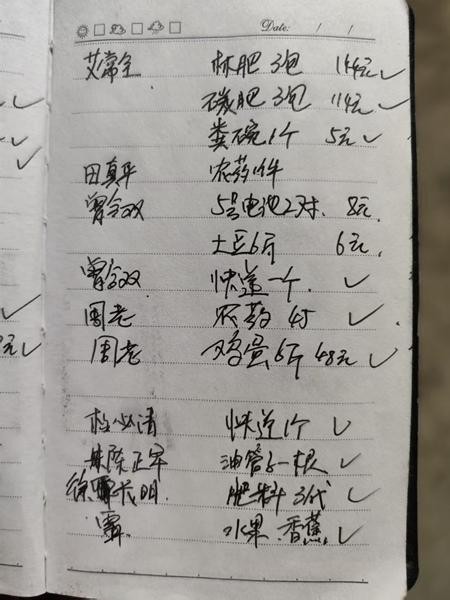 Date: / /
艾常全 林肥 3包 144元 ✓
磷肥 3包 114元 ✓
粪碗 1个 5元 ✓
田真平 农药1件
曾令双 5号电池2对. 8元.
土豆6斤 6元.
曾令双 快递一个. ✓
周老 农药 45 ✓
周老 鸡蛋6斤 48元 ✓
必清 快递1个 ✓
陈正军 油管子一根 ✓
徐长明 肥料 3代 ✓
覃 水果.香蕉 ✓